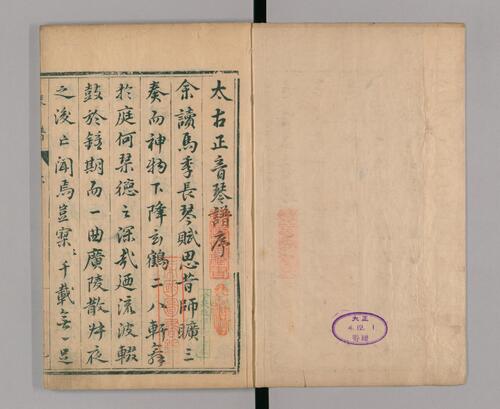 太古正音琴譜序
余讀馬季長琴賦思昔師曠三
奏而神物下降玄鶴二八軒舞
於庭何琹德之深哉迺流波輟
鼓於鍾期而一曲廣陵散叔夜
之後亡聞焉豈寥〻千載無一足
大正
4.12.1